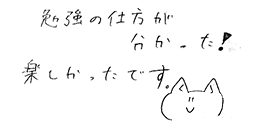 勉強の仕方が
分かった!
楽しかったです。